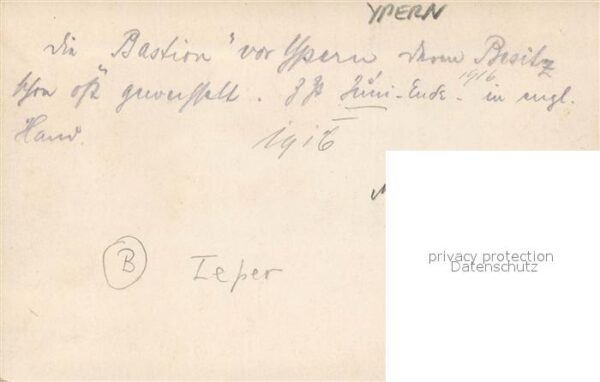 YPERN
die "Bastion" vor Ypern deren Besitz
schon oft gewechselt. z Zt Juni-Ende 1916 in engl.
Hand.
1916
B
Ieper
privacy protection
Datenschutz